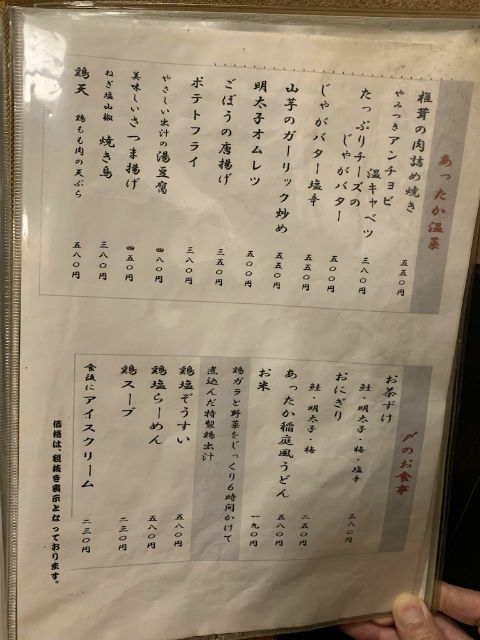 あったか温菜
椎茸の肉詰め焼き 五五〇円
やみつきアンチョビ
温キャベツ 三八〇円
たっぷりチーズの
じゃがバター 五〇〇円
じゃがバター塩辛 五五〇円
山芋のガーリック炒め 五五〇円
明太子オムレツ 五〇〇円
ごぼうの唐揚げ 三五〇円
ポテトフライ 三八〇円
やさしい出汁の湯豆腐 四八〇円
美味しいさつま揚げ 四五〇円
ねぎ塩山椒 焼き鳥 三八〇円
鶏天 鶏もも肉の天ぷら 五八〇円
〆のお食事
お茶づけ
鮭・明太子・梅・塩辛 三八〇円
おにぎり
鮭・明太子・梅 二五〇円
あったか稲庭風うどん 五八〇円
お米 一九〇円
鶏ガラと野菜をじっくり6時間かけて
煮込んだ特製鶏出汁
鶏塩ぞうすい 五八〇円
鶏塩らーめん 五八〇円
鶏スープ 二三〇円
食後にアイスクリーム 二三〇円
価格は、税抜き表示となっております。